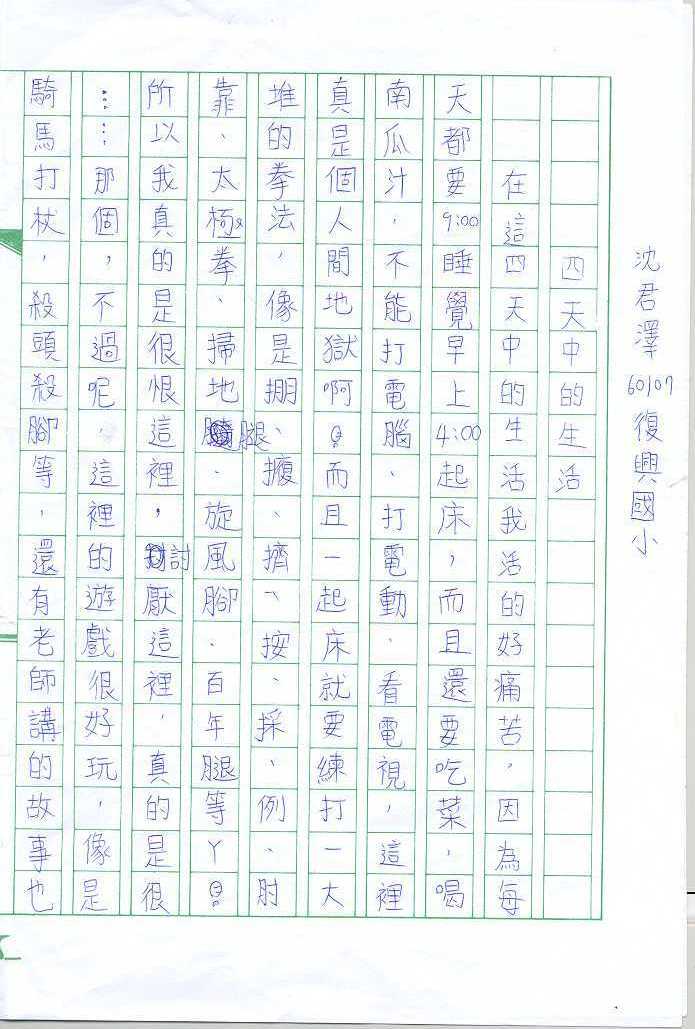 沈君澤 60107 復興國小
四天中的生活
在這四天中的生活我活的好痛苦，因為每
天都要9:00睡覺早上4:00起床，而且還要吃菜，喝
南瓜汁，不能打電腦、打電動、看電視，這裡
真是個人間地獄啊。而且一起床就要練打一大
堆的拳法，像是掤、擠、按、採、例、肘
靠、太極拳、掃地腿、旋風腳、百年腿等ㄚ。
所以我真的是很恨這裡，討厭這裡，真的是很
……那個，不過呢，這裡的遊戲很好玩，像是
騎馬打杖，殺頭殺腳等，還有老師講的故事也